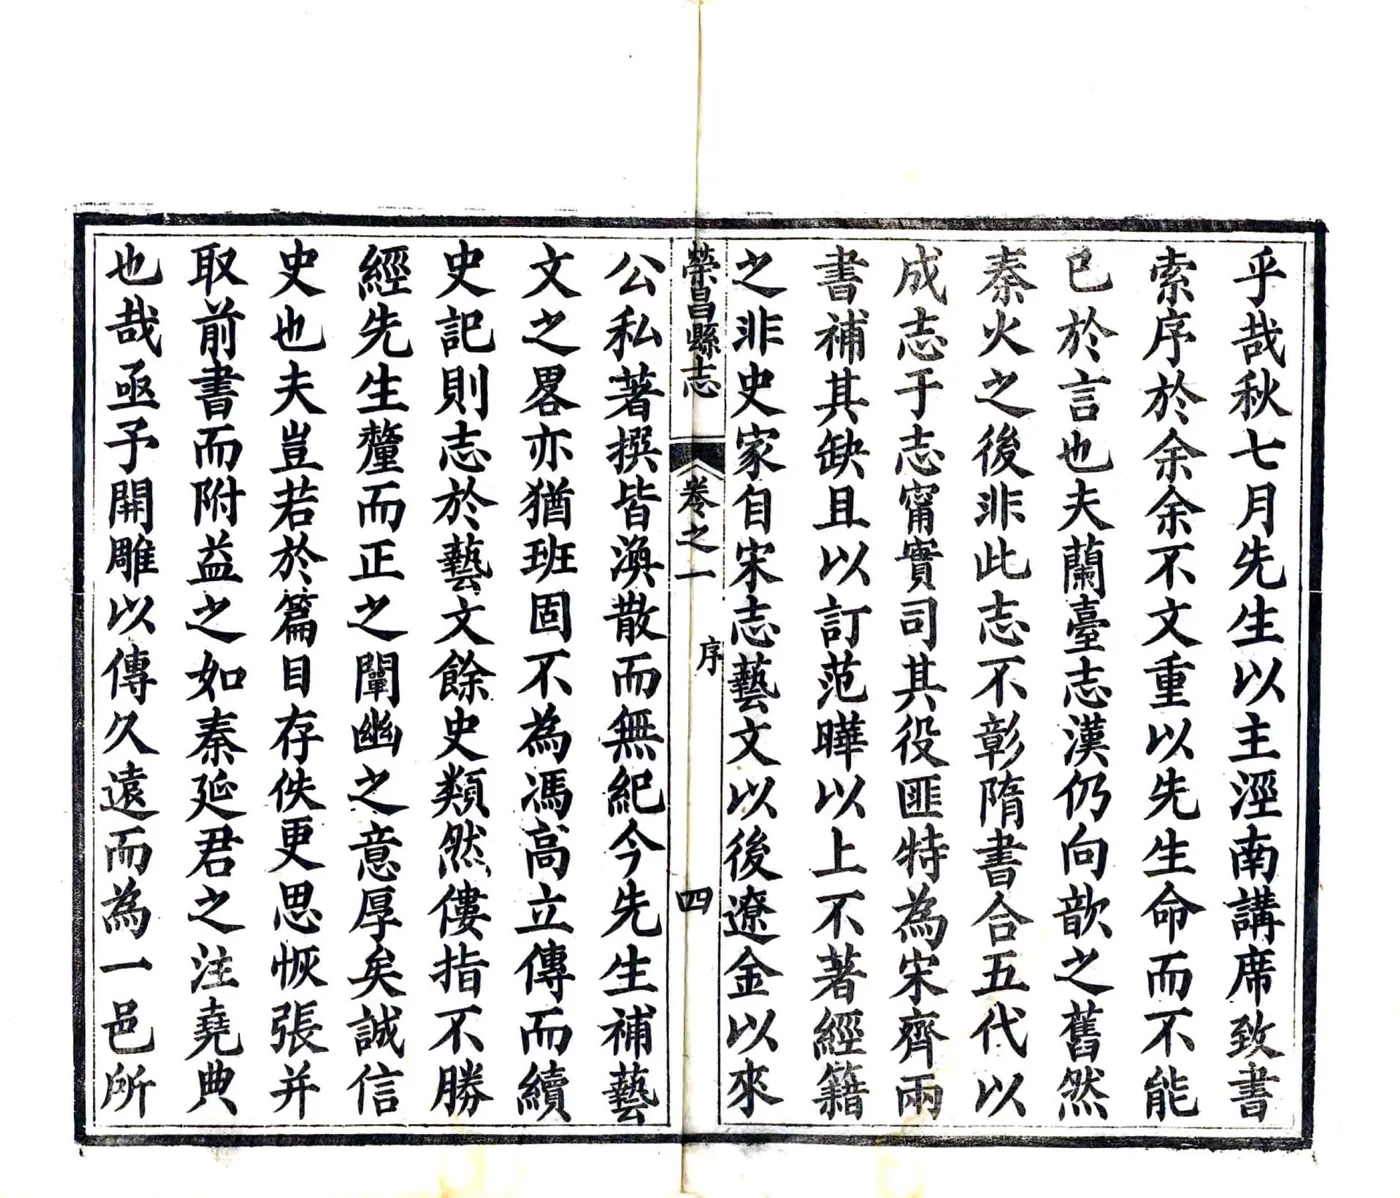 乎哉秋七月先生以主涇南講席致書
索序於余余不文重以先生命而不能
已於言也夫蘭臺志漢仍向歆之舊然
秦火之後非此志不彰隋書合五代以
成志于志甯實司其役匪特為宋齊兩
書補其缺且以訂范曄以上不著經籍
之非史家自宋志藝文以後遼金以來
榮昌縣志
卷之一
序
四
公私著撰皆渙散而無紀今先生補藝
文之畧亦猶班固不為馮高立傳而續
史記則志於藝文餘史類然僂指不勝
經先生釐而正之闡幽之意厚矣誠信
史也夫豈若於篇目存佚更思恢張并
取前書而附益之如秦延君之注堯典
也哉亟予開雕以傳久遠而為一邑所